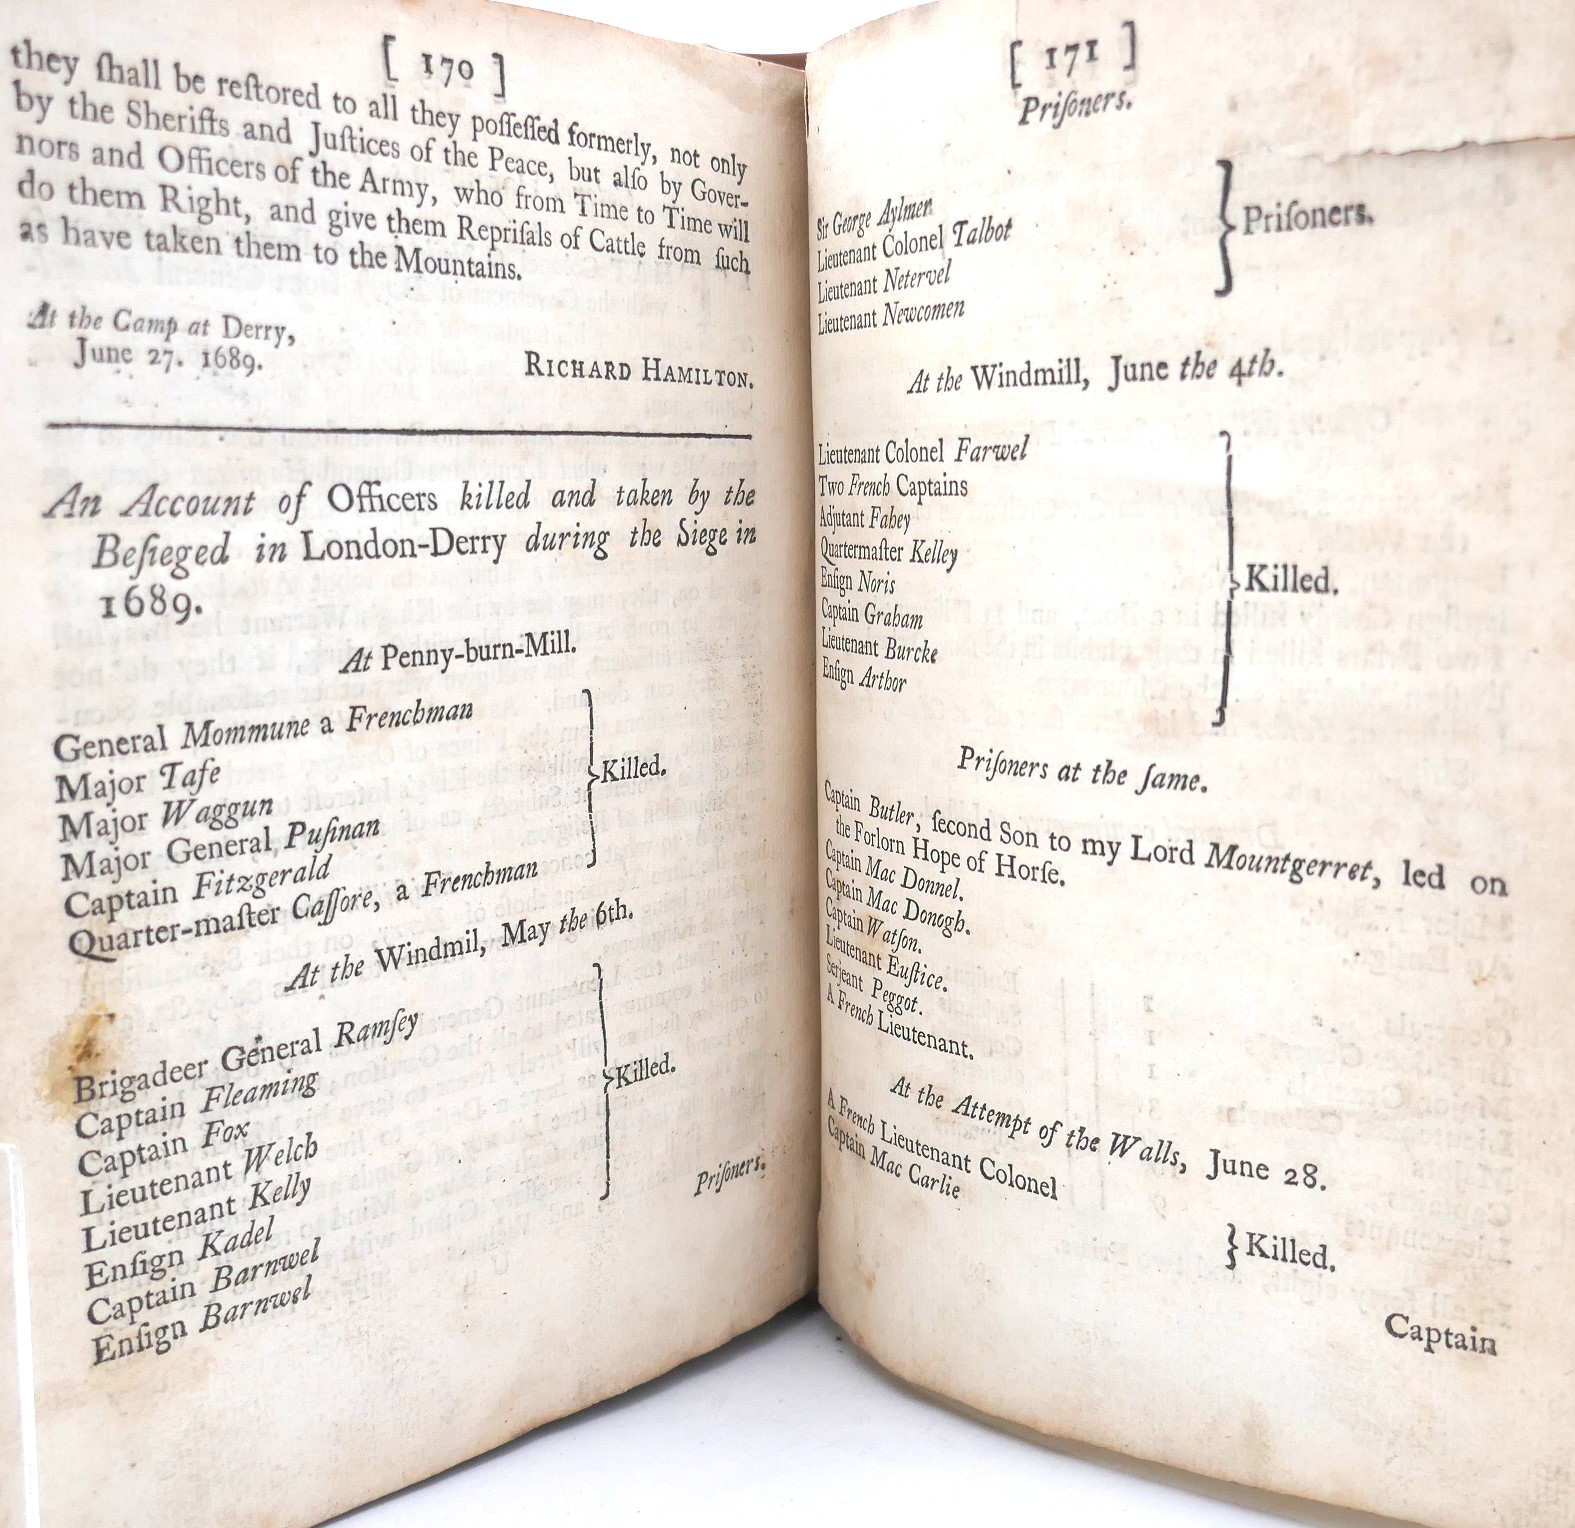 [ 170 ]
they ſhall be reſtored to all they poſſeſſed formerly, not only
by the Sheriffs and Juſtices of the Peace, but alſo by Gover-
nors and Officers of the Army, who from Time to Time will
do them Right, and give them Repriſals of Cattle from ſuch
as have taken them to the Mountains.
At the Camp at Derry,
June 27. 1689.
RICHARD HAMILTON.
An Account of Officers killed and taken by the
Beſieged in London-Derry during the Siege in
1689.
At Penny-burn-Mill.
General Mommune a Frenchman
Major Tafe
Major Waggun
Major General Puſinan
Captain Fitzgerald
Quarter-maſter Caſſore, a Frenchman
Killed.
At the Windmil, May the 6th.
Brigadeer General Ramſey
Captain Fleaming
Captain Fox
Lieutenant Welch
Lieutenant Kelly
Enſign Kadel
Captain Barnwel
Enſign Barnwel
Killed.
Priſoners.
[ 171 ]
Priſoners.
Sir George Aylmer
Lieutenant Colonel Talbot
Lieutenant Netervel
Lieutenant Newcomen
Priſoners.
At the Windmill, June the 4th.
Lieutenant Colonel Farwel
Two French Captains
Adjutant Fahey
Quartermaſter Kelley
Enſign Noris
Captain Graham
Lieutenant Burcke
Enſign Arthor
Killed.
Priſoners at the ſame.
Captain Butler, ſecond Son to my Lord Mountgerret, led on
the Forlorn Hope of Horſe.
Captain Mac Donnel.
Captain Mac Donogh.
Captain Watſon.
Lieutenant Euſtice.
Serjeant Peggot.
A French Lieutenant.
At the Attempt of the Walls, June 28.
A French Lieutenant Colonel
Captain Mac Carlie
Killed.
Captain